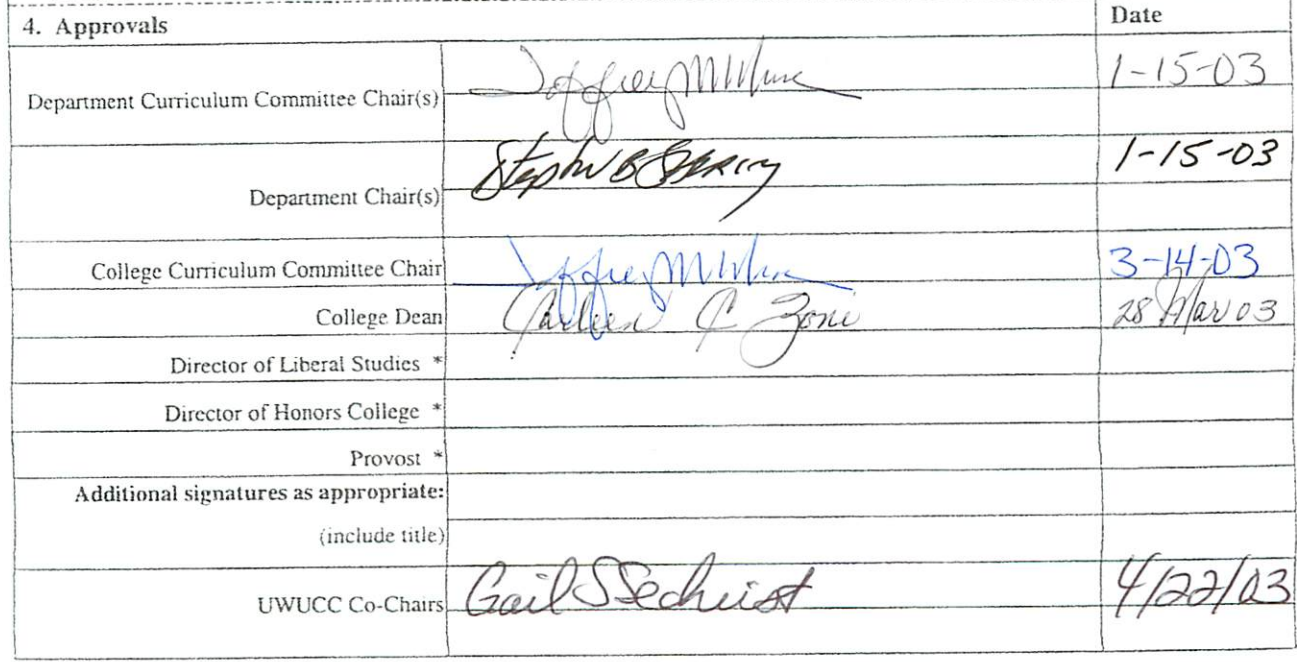 4. Approvals Date
Department Curriculum Committee Chair(s) 1-15-03
Department Chair(s) 1-15-03
College Curriculum Committee Chair 3-14-03
College Dean Carleen C Zoni 28 Mar 03
Director of Liberal Studies *
Director of Honors College *
Provost *
Additional signatures as appropriate:
(include title)
UWUCC Co-Chairs Gail S Sechrist 4/22/03